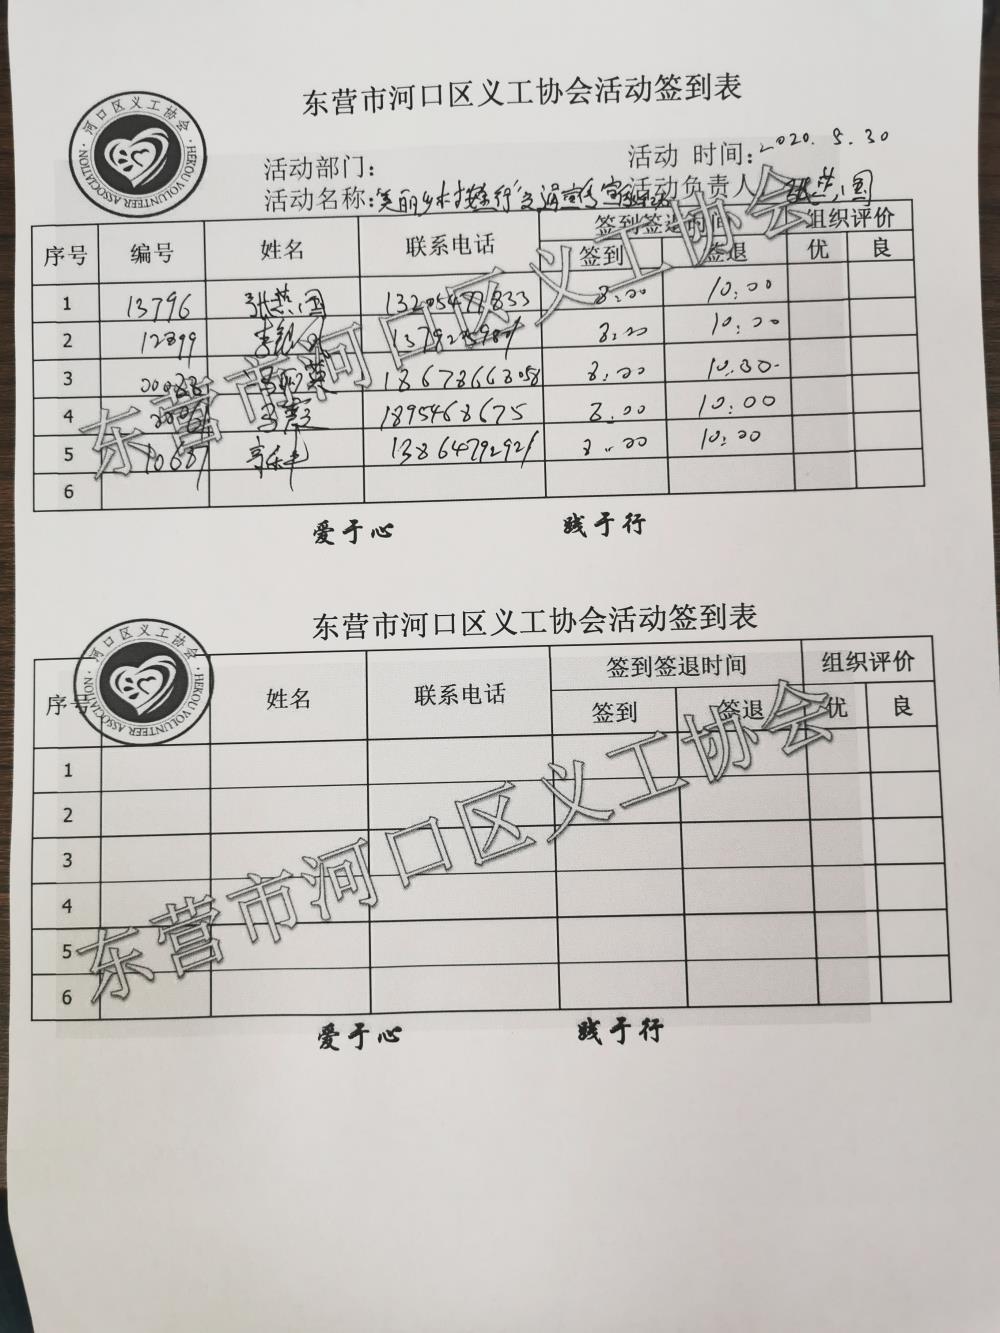 东营市河口区义工协会活动签到表
·河口区义工协会·
HEKOU VOLUNTEER ASSOCIATION
活动部门：
活动 时间：2020.5.30
活动名称：美丽乡村
活动负责人
序号 编号 姓名 联系电话 签到签退时间 组织评价
签到 签退 优 良
1 13796 13205477833 8:00 10:00
2 12899 8:00 10:00
3 8:00
4 1895468675 8:00 10:00
5 13864792921 8:00 10:00
6
爱于心 践于行
东营市河口区义工协会
东营市河口区义工协会活动签到表
·河口区义工协会·
HEKOU VOLUNTEER ASSOCIATION
序号 姓名 联系电话 签到签退时间 组织评价
签到 签退 优 良
1
2
3
4
5
6
爱于心 践于行
东营市河口区义工协会